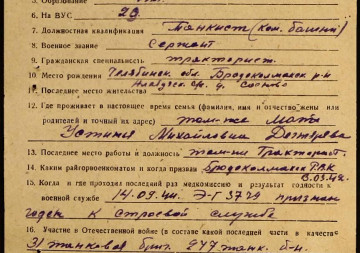 5. Образование
6. На ВУС 29
7. Должностная квалификация Танкист (ком. башни)
8. Военное звание Сержант
9. Гражданская специальность тракторист.
10. Место рождения Челябинск. обл. Бродокалмакск р-н
11. Последнее место жительства
12. Где проживает в настоящее время семья (фамилия, имя и отчество жены или
родителей и точный их адрес) там-же Мать
Устинья Михайловна
13. Последнее место работы и должность там-же Тракторист.
14. Каким райгорвоенкоматом и когда призван Бродокалмакск РВК
15. Когда и где проходил последний раз медкомиссию и результат годности к
военной службе 14.09.44. Э-Г 3779 признан
годен к строевой службе
16. Участие в Отечественной войне (в составе какой последней части в качестве
31 танковая бриг. 277 танк. б-н.